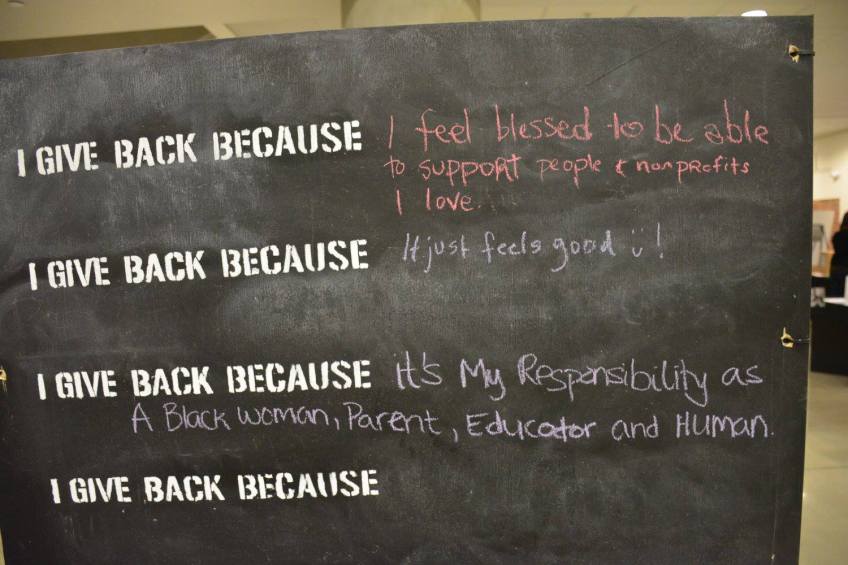 I GIVE BACK BECAUSE I feel blessed to be able
to support people & nonprofits
I love.
I GIVE BACK BECAUSE It just feels good ü!
I GIVE BACK BECAUSE it's My Responsibility as
A Black woman, Parent, Educator and Human.
I GIVE BACK BECAUSE